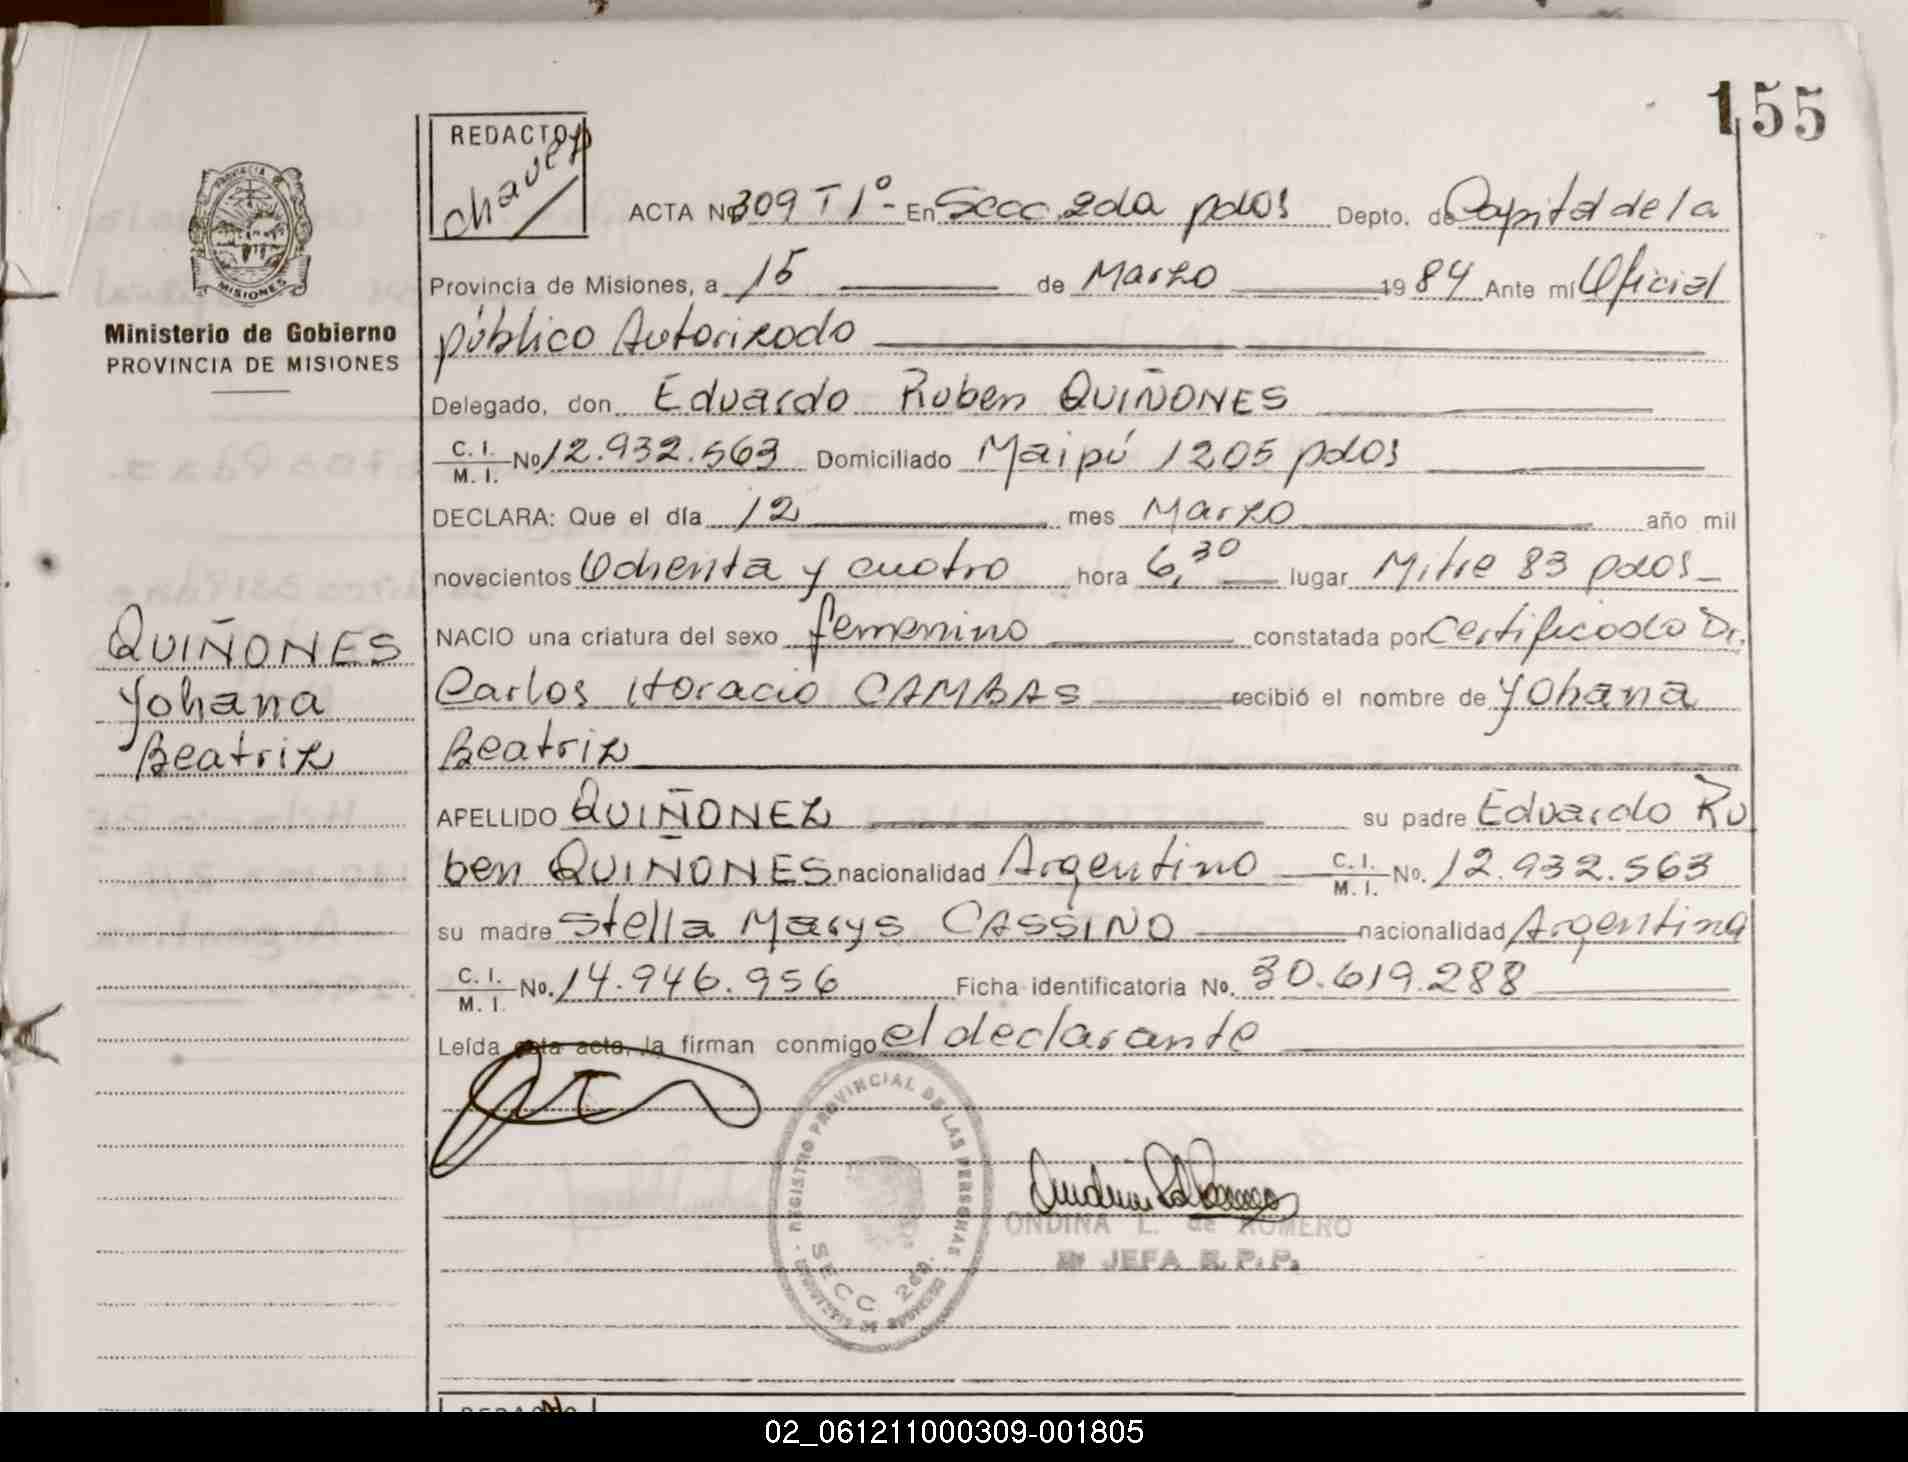 155
REDACTOR
Chavez
ACTA Nº 309 T 1º - En Secc. 2da pdas Depto. de Capital de la
Provincia de Misiones, a 15 de Marzo 1984 Ante mí Oficial
público Autorizado
Delegado, don Eduardo Ruben QUIÑONES
C. I. M. I. Nº 12.932.563 Domiciliado Maipú 1205 pdas
DECLARA: Que el día 12 mes Marzo año mil
novecientos Ochenta y cuatro hora 6,30 lugar Mitre 83 pdas
NACIO una criatura del sexo femenino constatada por Certificado Dr.
Carlos Horacio CAMBAS recibió el nombre de Yohana
Beatriz
APELLIDO QUIÑONEZ su padre Eduardo Ru
ben QUIÑONES nacionalidad Argentino C. I. M. I. No. 12.932.563
su madre Stella Marys CASSINO nacionalidad Argentina
C. I. M. I. No. 14.946.956 Ficha identificatoria No. 30.619.288
Leída esta acta, la firman conmigo el declarante
PROVINCIA DE
MISIONES
Ministerio de Gobierno
PROVINCIA DE MISIONES
QUIÑONES
Yohana
Beatriz
REGISTRO PROVINCIAL DE LAS PERSONAS
SECC 2da.
ONDINA L. de ROMERO
JEFA R. P. P.
02_061211000309-001805